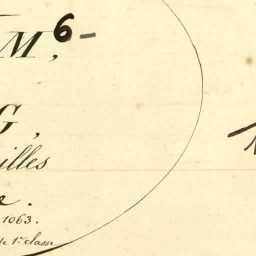 M, 6-
G,
illes
e.
1063.
de 1e classe